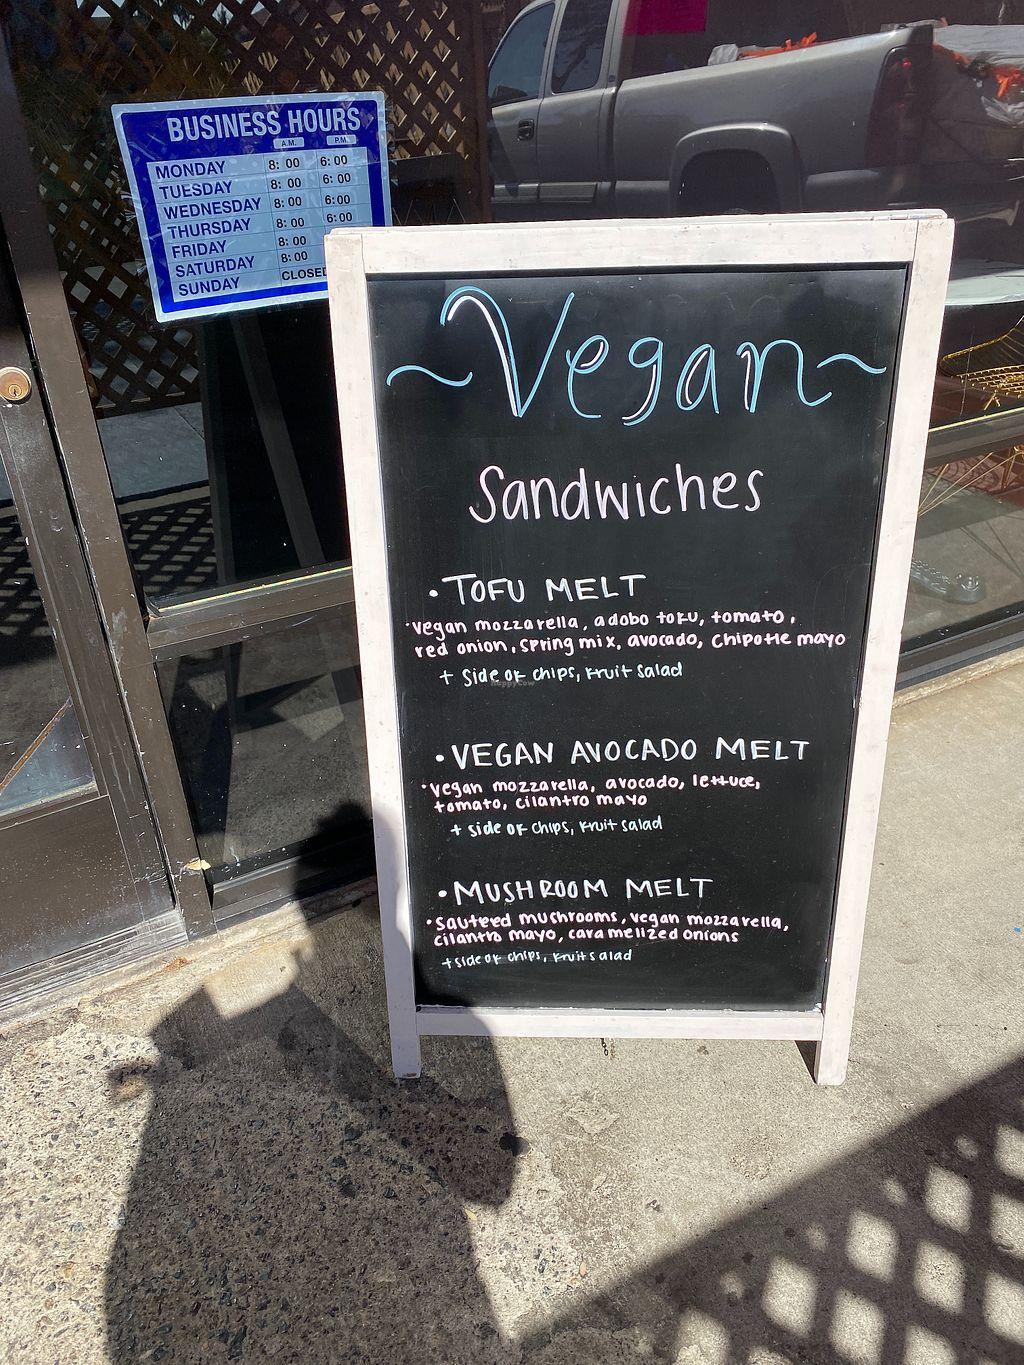 BUSINESS HOURS
A.M. P.M.
MONDAY 8:00 6:00
TUESDAY 8:00 6:00
WEDNESDAY 8:00 6:00
THURSDAY 8:00 6:00
FRIDAY 8:00
SATURDAY 8:00
SUNDAY CLOSED
~Vegan~
Sandwiches
• TOFU MELT
• vegan mozzarella, adobo tofu, tomato,
red onion, spring mix, avocado, chipotle mayo
+ side of chips, fruit salad
happycow
• VEGAN AVOCADO MELT
• vegan mozzarella, avocado, lettuce,
tomato, cilantro mayo
+ side of chips, fruit salad
• MUSHROOM MELT
• sauteed mushrooms, vegan mozzarella,
cilantro mayo, caramelized onions
+ side of chips, fruit salad